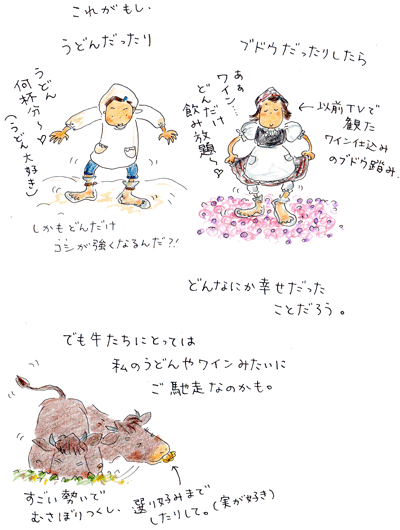 これがもし、
うどんだったり
うどん
何杯分〜♡
(うどん大好き)
しかもどんだけ
コシが強くなるんだ?!
ブドウだったりしたら
あぁ
ワイン…
どんだけ
飲み放題〜♡
←以前TVで
観た
ワイン仕込み
のブドウ踏み。
どんなにか幸せだった
ことだろう。
でも牛たちにとっては
私のうどんやワインみたいに
ご馳走なのかも。
すごい勢いで
むさぼりつくし、
選り好みまで
したりして。(実が好き)